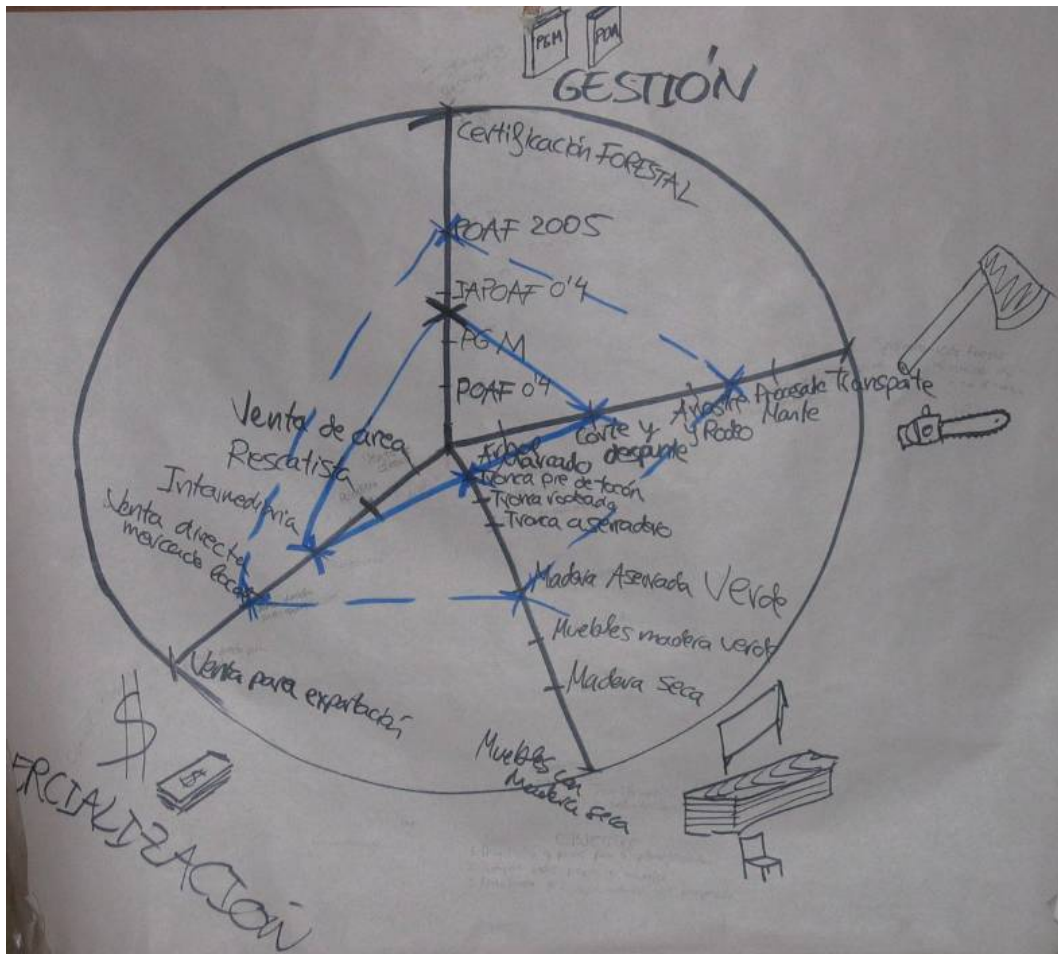 PGM
POA
GESTIÓN
Certificación FORESTAL
POAF 2005
IAPOAF 0'4
PGM
POAF 0'4
Arbol
marcado
Corte y
despunte
Arrastre
Rodeo
Transpote
Venta de area
Rescatista
Intermediaria
Venta directa
mercado local
Venta para exportación
Tronca pie de tocón
Tronca rodeada
Tronca aserradero
Madera Aserrada Verde
Muebles madera verde
Madera seca
Muebles con
Madera seca
$
$
ERCIALIZACIÓN